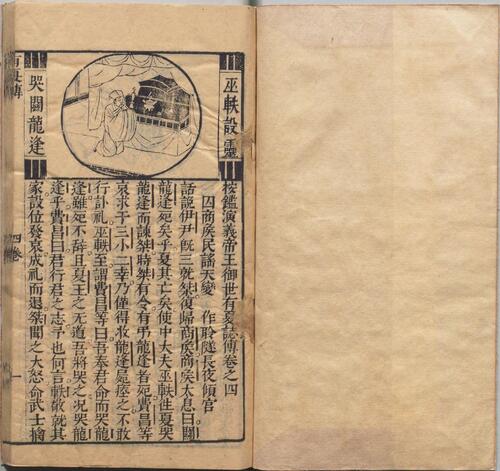 巫軼設靈
哭關龍逢
按鑑演義帝王御世有夏誌傳卷之四
囚商矦民謠天變 作聆隧長夜傾宮
話說伊尹旣三就桀復歸商矦商矦太息曰關
龍逄死矣乎夏其亡矣使中大夫巫軼徃夏哭
龍逄而諫桀時桀有令有弔龍逄者死費昌等
哀求于三小二幸乃僅得收龍逄屍瘞之不敢
行訃禮巫軼至謂費昌等曰吾奉君命而哭龍
逄雖死不辭且夏王之无道吾將哭之况哭龍
逄乎費昌曰君行君之志予也何言軼敬就其
家設位發哀成礼而退桀聞之大怒命武士擒
有夏傳
四卷
一